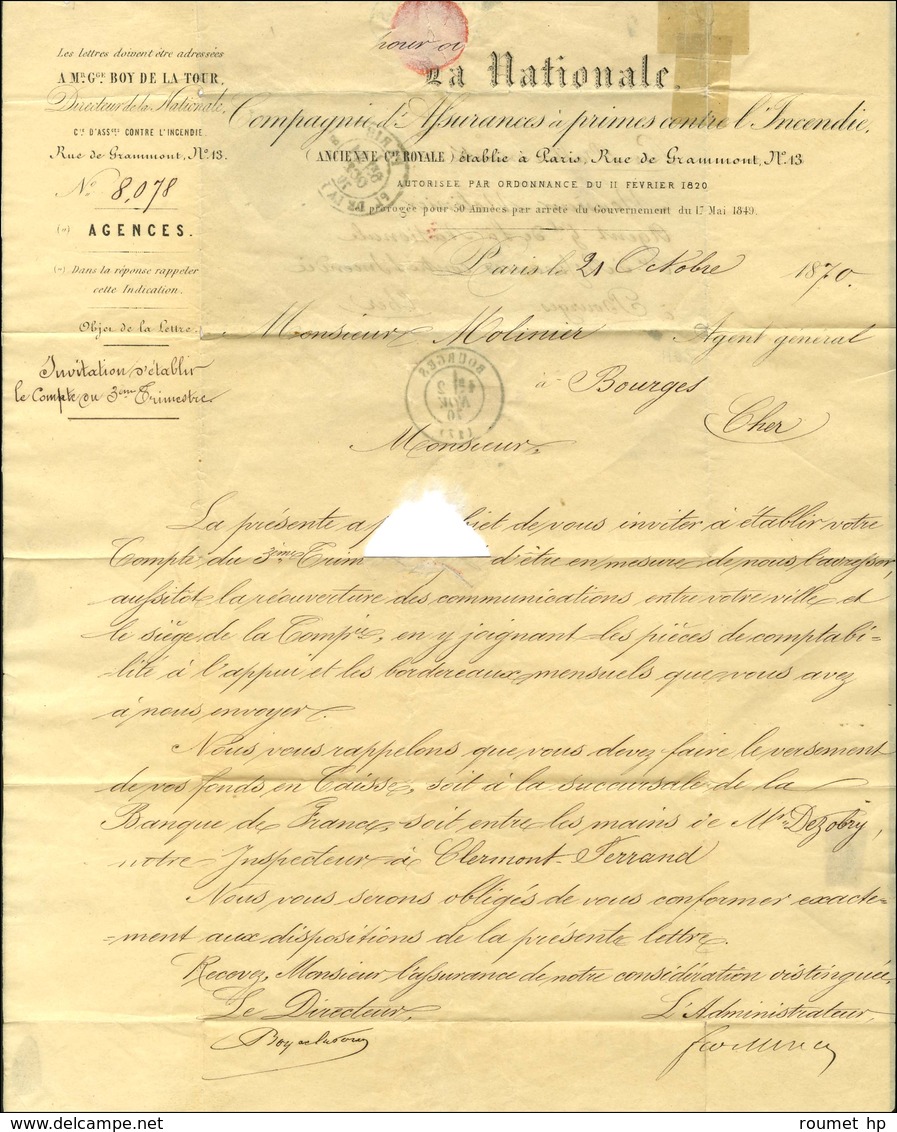 Les lettres doivent être adressées
A Mr. Gor. BOY DE LA TOUR,
Directeur de la Nationale,
Cie D'ASSces CONTRE L'INCENDIE.
Rue de Grammont, No. 13.
No 8,078
AGENCES.
(-) Dans la réponse rappeler
cette Indication.
Objet de la Lettre.
Invitation d'établir
le Compte du 3ème Trimestre.
La Nationale,
Compagnie d'Assurances à primes contre l'Incendie,
(ANCIENNE Cie ROYALE) établie à Paris, Rue de Grammont, No. 13
AUTORISÉE PAR ORDONNANCE DU 11 FÉVRIER 1820
prorogée pour 50 Années par arrêté du Gouvernement du 17 Mai 1849.
Paris le 21 Octobre 1870.
Monsieur Molinier Agent général
à Bourges
Cher
BOURGES
Monsieur,
La présente a de vous inviter à établir votre
Compte du 3ème Trim d'être en mesure de nous l'adresser,
aussitôt la réouverture des communications entre votre ville et
le siège de la Compie, en y joignant les pièces de comptabi-
-lité à l'appui et les bordereaux mensuels que vous avez
à nous envoyer.
Nous vous rappelons que vous devez faire le versement
de vos fonds en Caisse, soit à la succursale de la
Banque de France, soit entre les mains de Mr. Dezobry,
notre Inspecteur à Clermont-Ferrand
Nous vous serons obligés de vous conformer exacte-
-ment aux dispositions de la présente lettre.
Recevez, Monsieur l'assurance de notre considération distinguée,
Le Directeur, L'Administrateur,
Boy de la Tour
roumet hp